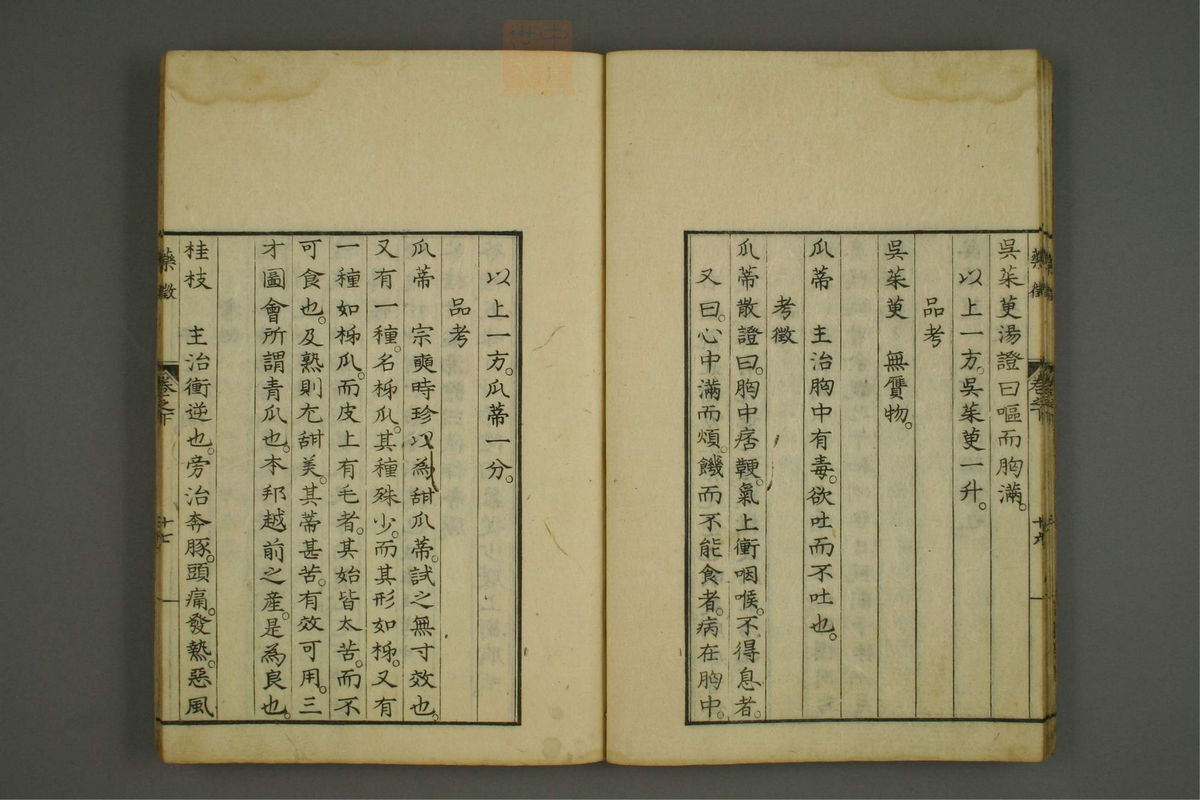 吳茱萸湯證曰嘔而胸滿。
以上一方。吳茱萸一升。
品考
吳茱萸 無贋物。
瓜蒂 主治胸中有毒。欲吐而不吐也。
考徵
瓜蒂散證曰。胸中痞鞕。氣上衝咽喉。不得息者。
又曰。心中滿而煩。饑而不能食者。病在胸中。
以上一方。瓜蒂一分。
品考
瓜蒂 宗奭時珍以為甜瓜蒂。試之無寸效也。
又有一種。名梯瓜。其種殊少。而其形如梯。又有
一種如梯瓜。而皮上有毛者。其始皆太苦。而不
可食也。及熟則冘甜美。其蒂甚苦。有效可用。三
才圖會所謂青瓜也。本邦越前之產。是為良也。
桂枝 主治衝逆也。旁治奔豚。頭痛。發熱。惡風
藥徵
卷之下
十七